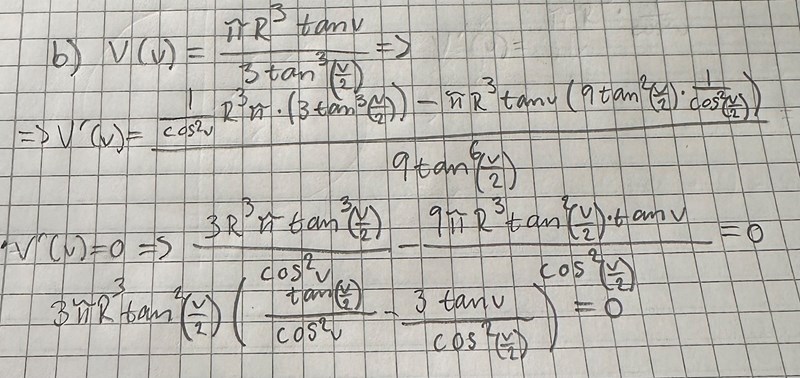 b) V(v) = πR³ tanv / 3 tan³(v/2) =>
=> V'(v) = (1/cos²v R³π · (3 tan³(v/2)) - πR³ tanv (9 tan²(v/2) · 1/cos²(v/2))) / 9 tan⁶(v/2)
V'(v) = 0 => 3R³π tan³(v/2) / cos²v - 9πR³ tan²(v/2) · tanv / cos²(v/2) = 0
3πR³ tan²(v/2) (tan(v/2) / cos²v - 3 tanv / cos²(v/2)) = 0